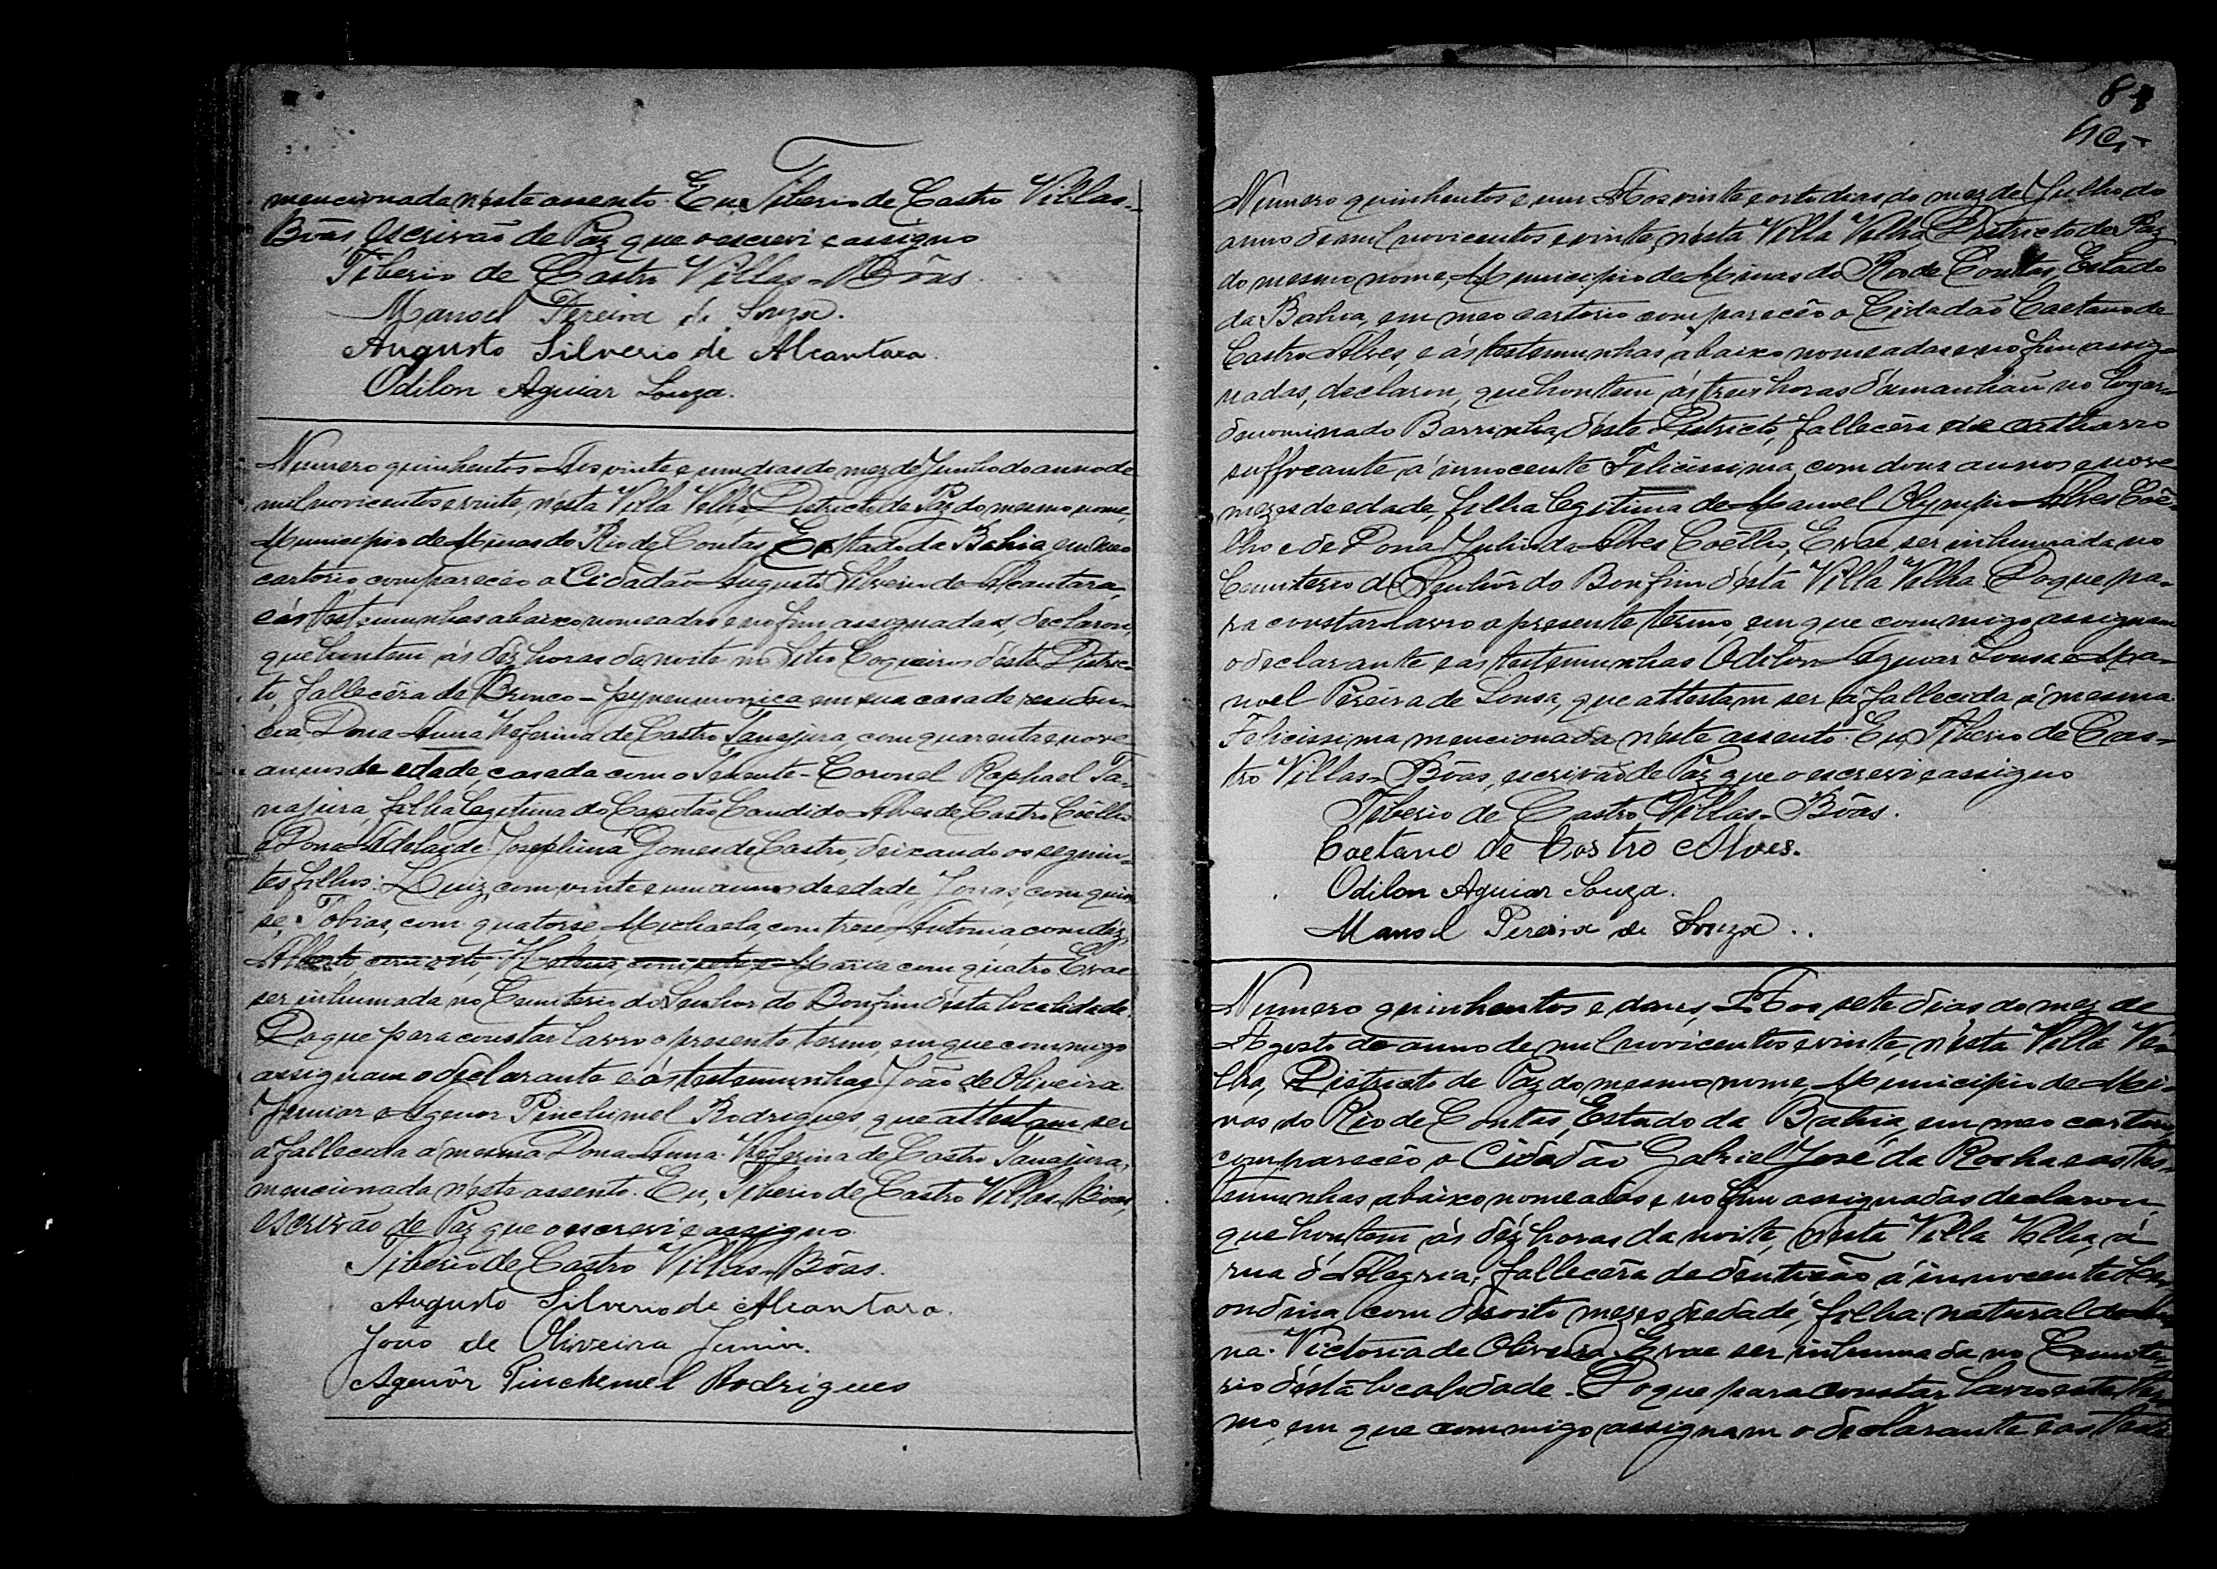 mencionada néste assento. Eu, Tiberio de Castro Villas-
Bôas, Escrivão de Paz que o escrevi e assigno
Tiberio de Castro Villas-Bôas.
Manoel Pereira de Souza.
Augusto Silverio de Alcantara.
Odilon Aguiar Souza.
Numero quinhentos. Aos vinte e um dias do mez de Junho do anno de
mil novicentos e vinte, nésta Villa Velha, Districto de Paz do mesmo nome,
Municipio de Minas do Rio de Contas, Estado da Bahia, em meo
cartorio, compareceo o Cidadão Augusto Silverio de Alcantara,
e ás testemunhas abaixo nomeadas e no fim assignadas, declarou,
que hontem ás dez horas da noite no Sitio Coqueiros déste Distric-
to, fallecêra de Bronco-pyneumonica em sua casa de residen-
cia Dona Anna Zeferina de Castro Tanajura, com quarenta e nove
annos de edade casada com o Tenente-Coronel Raphael Ta-
najura, filha legitima do Capitão Candido Alves de Castro Coêlho
e Dona Adelaide Josephina Gomes de Castro, deixando os seguin-
tes filhos: Luiz, com vinte e um annos de edade, Jonas, com quin-
se, Tobias, com quatorse Michaela, com trese, Antonia, com dez,
Alberto, com oito, Helena com sete e Maria com quatro. E vae
ser inhumada no Cemiterio do Senhor do Bonfim desta localidade.
Do que para constar lavro o presente termo, em que commigo
assignam o declarante e ás testemunhas João de Oliveira
Junior e Agenor Pinchemel Rodrigues, que attestam ser
a fallecida á mesma Dona Anna Zeferina de Castro Tanajura,
mencionada néste assento. Eu, Tiberio de Castro Villas-Bôas,
escrivão de Paz que o escrevi e assigno.
Tiberio de Castro Villas-Bôas.
Augusto Silverio de Alcantara.
João de Oliveira Junior.
Agenôr Pinchemel Rodrigues
Numero quinhentos e um. Aos vinte e oito dias do mez de Julho do
anno de mil novicentos e vinte, nésta Villa Velha, Districto de Paz
do mesmo nome, Municipio de Minas do Rio de Contas, Estado
da Bahia, em meo cartorio compareceo o Cidadão Caetano de
Castro Alves, e ás testemunhas abaixo nomeadas e no fim assig-
nadas, declarou, que hontem ás tres horas d'amanhaã no logar
denominado Barrinha, déste Districto, fallecêra de catharro
suffocante a innocente Felicissima, com dous annos e nove
mezes de edade, filha legitima de Manoel Olympio Alves Coê-
lho e de Dona Julia Alves Coêlho, E vae ser inhumada no
Cemiterio do Senhôr do Bonfim désta Villa Velha. Do que pa-
ra constar lavro o presente termo, em que commigo assignam
o declarante e as testemunhas Odilon Aguiar Sousa e Ma-
noel Pereira de Sousa, que attestam ser á fallecida á mesma
Felicissima mencionada néste assento. Eu, Tiberio de Cas-
tro Villas-Bôas, escrivão de Paz que o escrevi e assigno
Tiberio de Castro Villas-Bôas.
Caetano de Castro Alves.
Odilon Aguiar Souza.
Manoel Pereira de Souza.
Numero quinhentos e dous, Aos sete dias do mez de
Agosto do anno de mil novicentos e vinte, nésta Villa Ve-
lha, Districto de Paz do mesmo nome, Municipio de Mi-
nas do Rio de Contas, Estado da Bahia, em meo cartorio
compareceo o Cidadão Gabriel José da Rocha e as tes-
temunhas abaixo nomeadas e no fim assignadas declarou
que hontem ás déz horas da noite, nésta Villa Velha, á
rua d'Alegria, fallecêra de dentição á innocente
com desoito mezes de edade, filha natural de
na Victoria de Oliveira. E vae ser inhumada no Cemite-
rio désta localidade. Do que para constar lavro este ter-
mo, em que commigo assignam o declarante e as teste